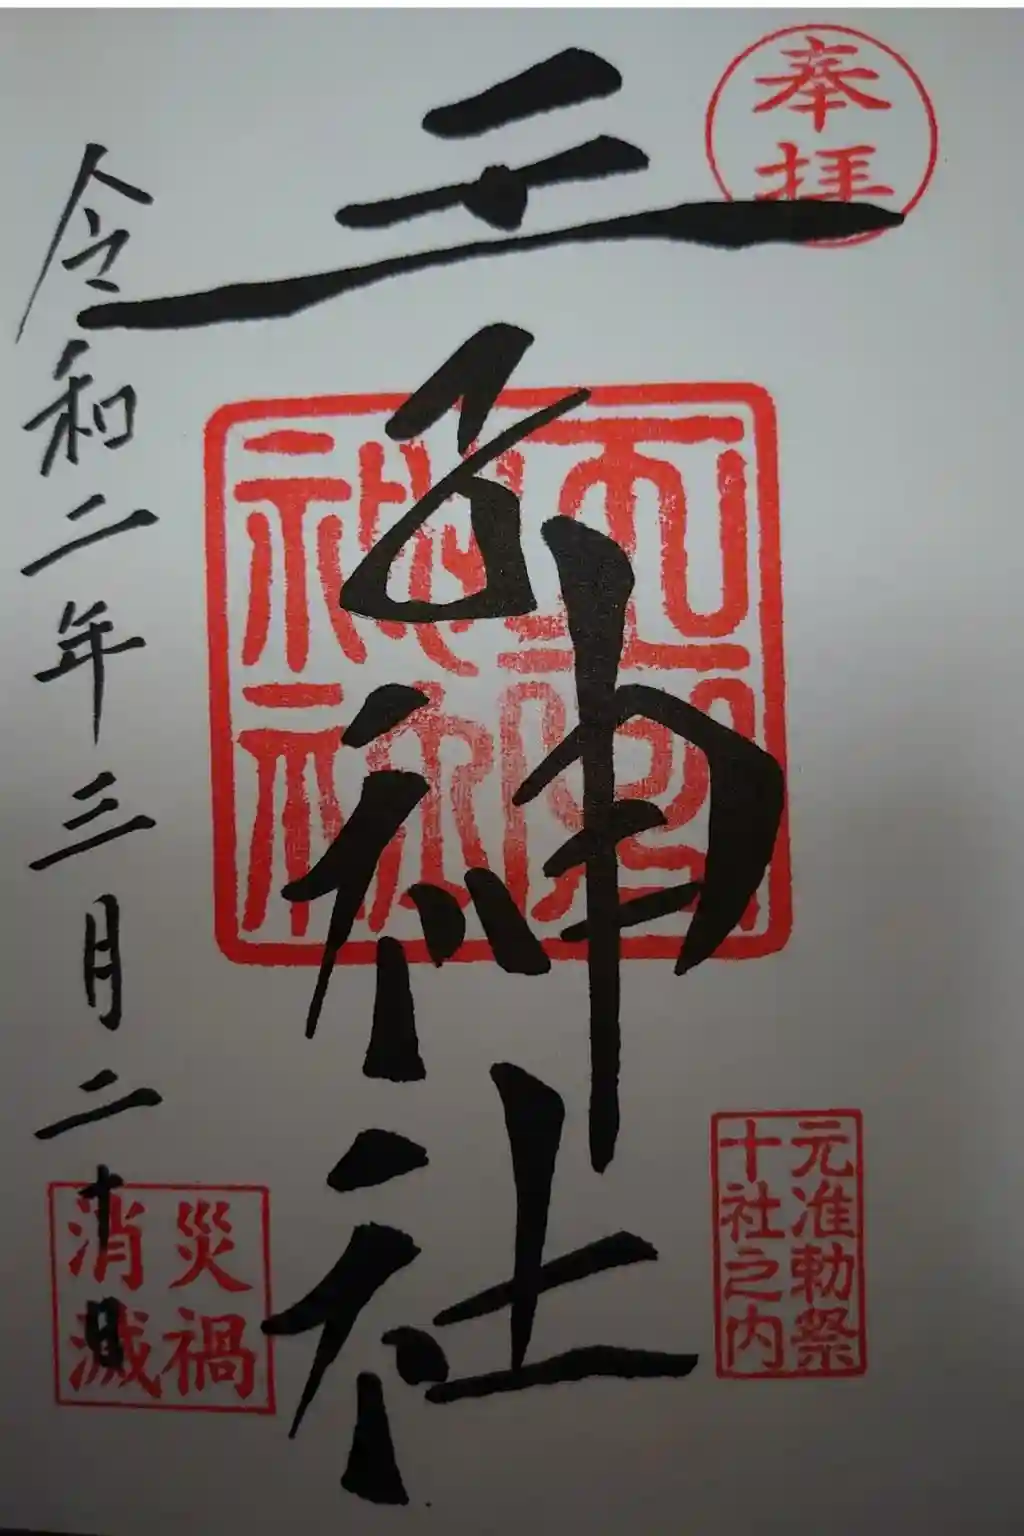 奉拝
王子神社
元准勅祭
十社之内
令和二年三月二十日
災禍
消滅